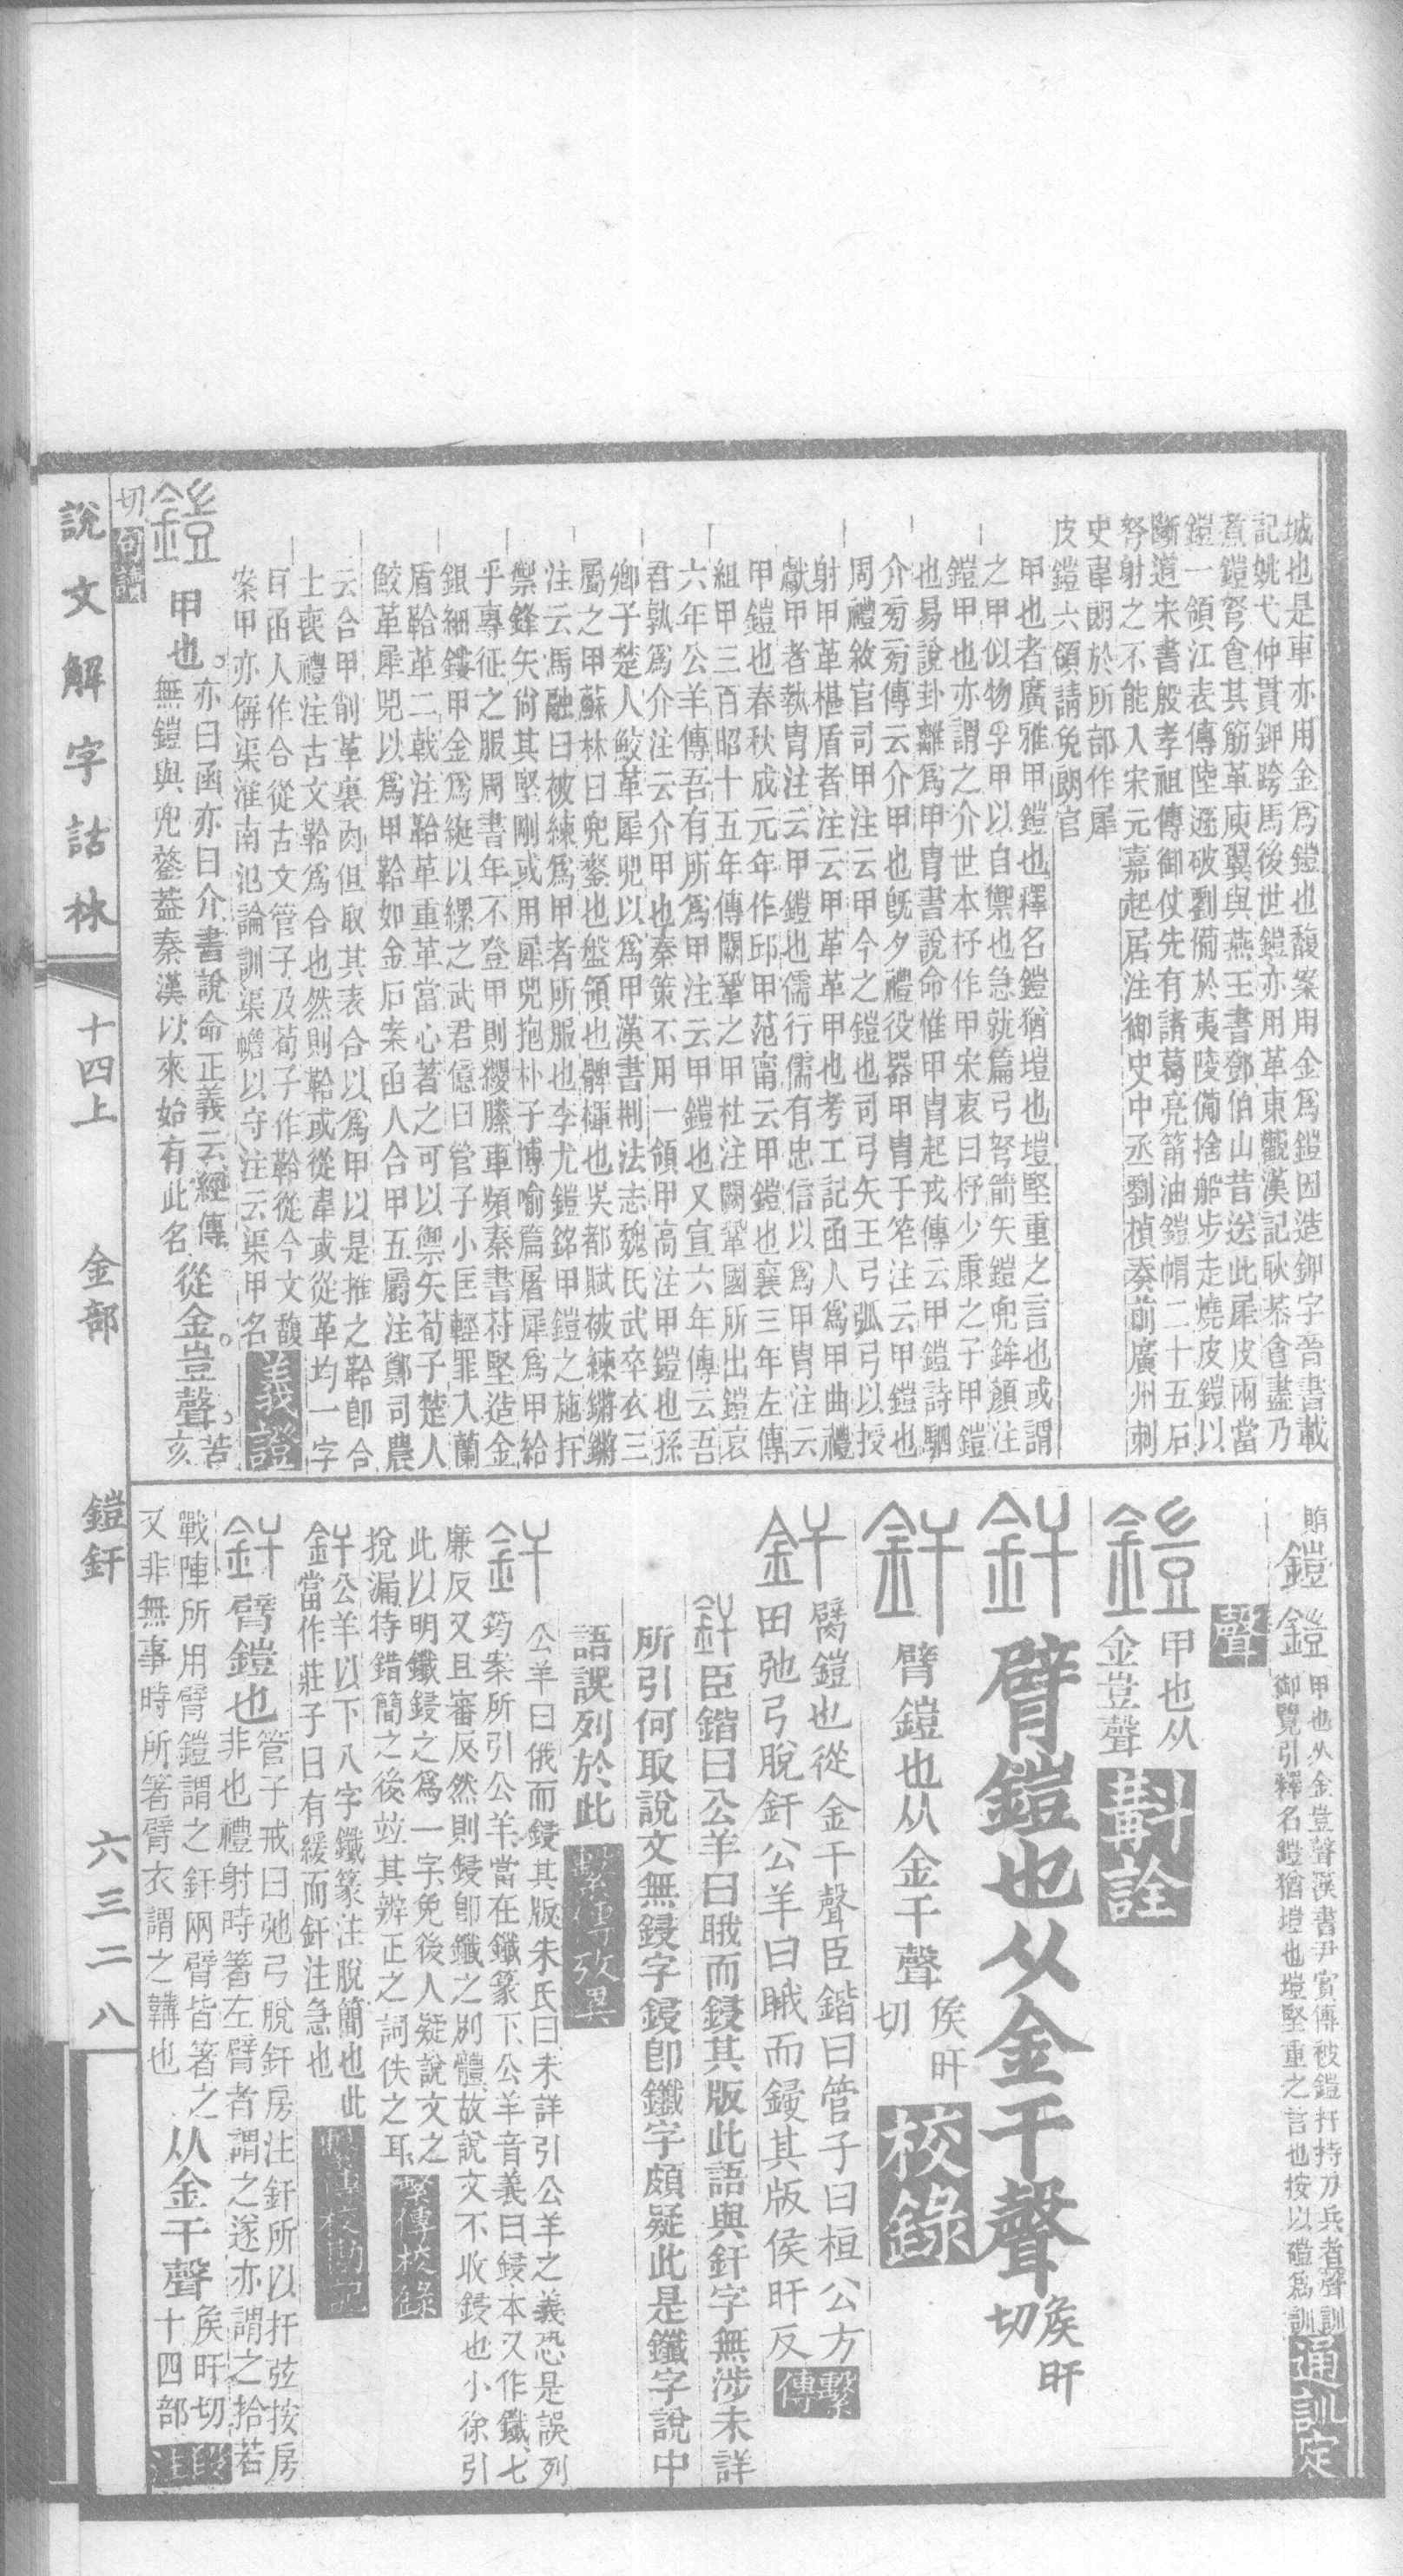 城也是車亦用金爲鎧也馥案用金爲鎧因造鉀字晉書載
記姚弋仲貫鉀跨馬後世鎧亦用革東觀漢記耿恭食盡乃
煮鎧弩食其筋革庾翼與燕王書鄧伯山昔送此犀皮兩當
鎧一領江表傳陸遜破劉備於夷陵備捨船步走燒皮鎧以
斷道宋書殷孝祖傳御仗先有諸葛亮筩油鎧帽二十五石
弩射之不能入宋元嘉起居注御史中丞劉楨奏前廣州刺
史韋朗於所部作犀
皮鎧六領請免朗官
甲也者廣雅甲鎧也釋名鎧猶塏也塏堅重之言也或謂
之甲似物孚甲以自禦也急就篇弓弩箭矢鎧兜鉾顏注
鎧甲也亦謂之介世本杼作甲宋衷曰杼少康之子甲鎧
也易說卦離爲甲胄書說命惟甲胄起戎傳云甲鎧詩駟
介旁旁傳云介甲也旣夕禮役器甲胄于笮注云甲鎧也
周禮敘官司甲注云甲今之鎧也司弓矢王弓弧弓以授
射甲革椹盾者注云甲革革甲也考工記函人爲甲曲禮
獻甲者執胄注云甲鎧也儒行儒有忠信以爲甲胄注云
甲鎧也春秋成元年作邱甲范甯云甲鎧也襄三年左傳
組甲三百昭十五年傳闕鞏之甲杜注闕鞏國所出鎧哀
六年公羊傳吾有所爲甲注云甲鎧也又宣六年傳云吾
君孰爲介注云介甲也秦策不用一領甲高注甲鎧也孫
卿子楚人鮫革犀兕以爲甲漢書刑法志魏氏武卒衣三
屬之甲蘇林曰兜鍪也盤領也髀褌也吳都賦被練鏘鏘
注云馬融曰被練爲甲者所服也李尤鎧銘甲鎧之施扞
禦鋒矢尙其堅剛或用犀兕抱朴子博喻篇屠犀爲甲給
乎專征之服周書年不登甲則纓縢車頻秦書苻堅造金
銀細鏤甲金爲綖以縲之武君億曰管子小匡輕罪入蘭
盾鞈革二戟注鞈革重革當心著之可以禦矢荀子楚人
鮫革犀兕以爲甲鞈如金石案函人合甲五屬注鄭司農
云合甲削革裏肉但取其表合以爲甲以是推之鞈卽合
士喪禮注古文鞈爲合也然則鞈或從韋或從革均一字
耳函人作合從古文管子及荀子作鞈從今文馥
案甲亦偁渠淮南氾論訓渠幨以守注云渠甲名 義證
鎧 甲也。亦曰函亦曰介書說命正義云經傳無鎧與兜鍪蓋秦漢以來始有此名。從金豈聲。苦亥
切 句讀
說文解字詁林 十四上 金部 鎧釬 六三二八
鎧 鎧 甲也从金豈聲漢書尹賞傳被鎧扞持刀兵者聲訓
御覽引釋名鎧猶塏也塏堅重之言也按以磑爲訓 通訓定
聲
鎧 甲也从
金豈聲 斠詮
釬 臂鎧也从金干聲 矦旰切
釬 臂鎧也从金干聲 矦旰切 校錄
釬 臂鎧也從金干聲臣鍇曰管子曰桓公方
田弛弓脫釬公羊曰睋而鋟其版侯旰反 繫傳
釬臣鍇曰公羊曰睋而鋟其版此語與釬字無涉未詳
所引何取說文無鋟字鋟卽鑯字頗疑此是鑯字說中
語誤列於此 繫傳攷異
釬 公羊曰俄而鋟其版朱氏曰未詳引公羊之義恐是誤列
筠案所引公羊當在鑯篆下公羊音義曰鋟本又作鑯七
廉反又且審反然則鋟卽鑯之別體故說文不收鋟也小徐引
此以明鑯鋟之爲一字免後人疑說文之
挩漏特錯簡之後竝其辨正之詞佚之耳 繫傳校錄
釬 公羊以下八字鑯篆注脫簡也此
當作莊子曰有緩而釬注急也 繫傳校勘記
釬 臂鎧也 管子戒曰弛弓脫釬房注釬所以扞弦按房
非也禮射時箸左臂者謂之遂亦謂之拾若
戰陣所用臂鎧謂之釬兩臂皆箸之
又非無事時所箸臂衣謂之韝也 从金干聲 矦旰切十四部 段注